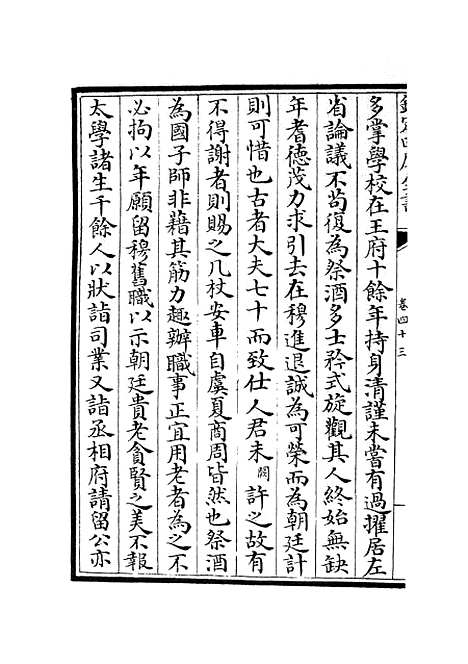 欽定四庫全書
卷四十三
多掌學校在王府十餘年持身清謹未嘗有過擢居左
省論議不茍復為祭酒多士矜式旋觀其人終始無缺
年耆德茂力求引去在穆進退誠為可榮而為朝廷計
則可惜也古者大夫七十而致仕人君未闕許之故有
不得謝者則賜之几杖安車自虞夏商周皆然也祭酒
為國子師非藉其筋力趣辦職事正宜用老者為之不
必拘以年願留穆舊職以示朝廷貴老貪賢之美不報
太學諸生千餘人以狀詣司業又詣丞相府請留公亦